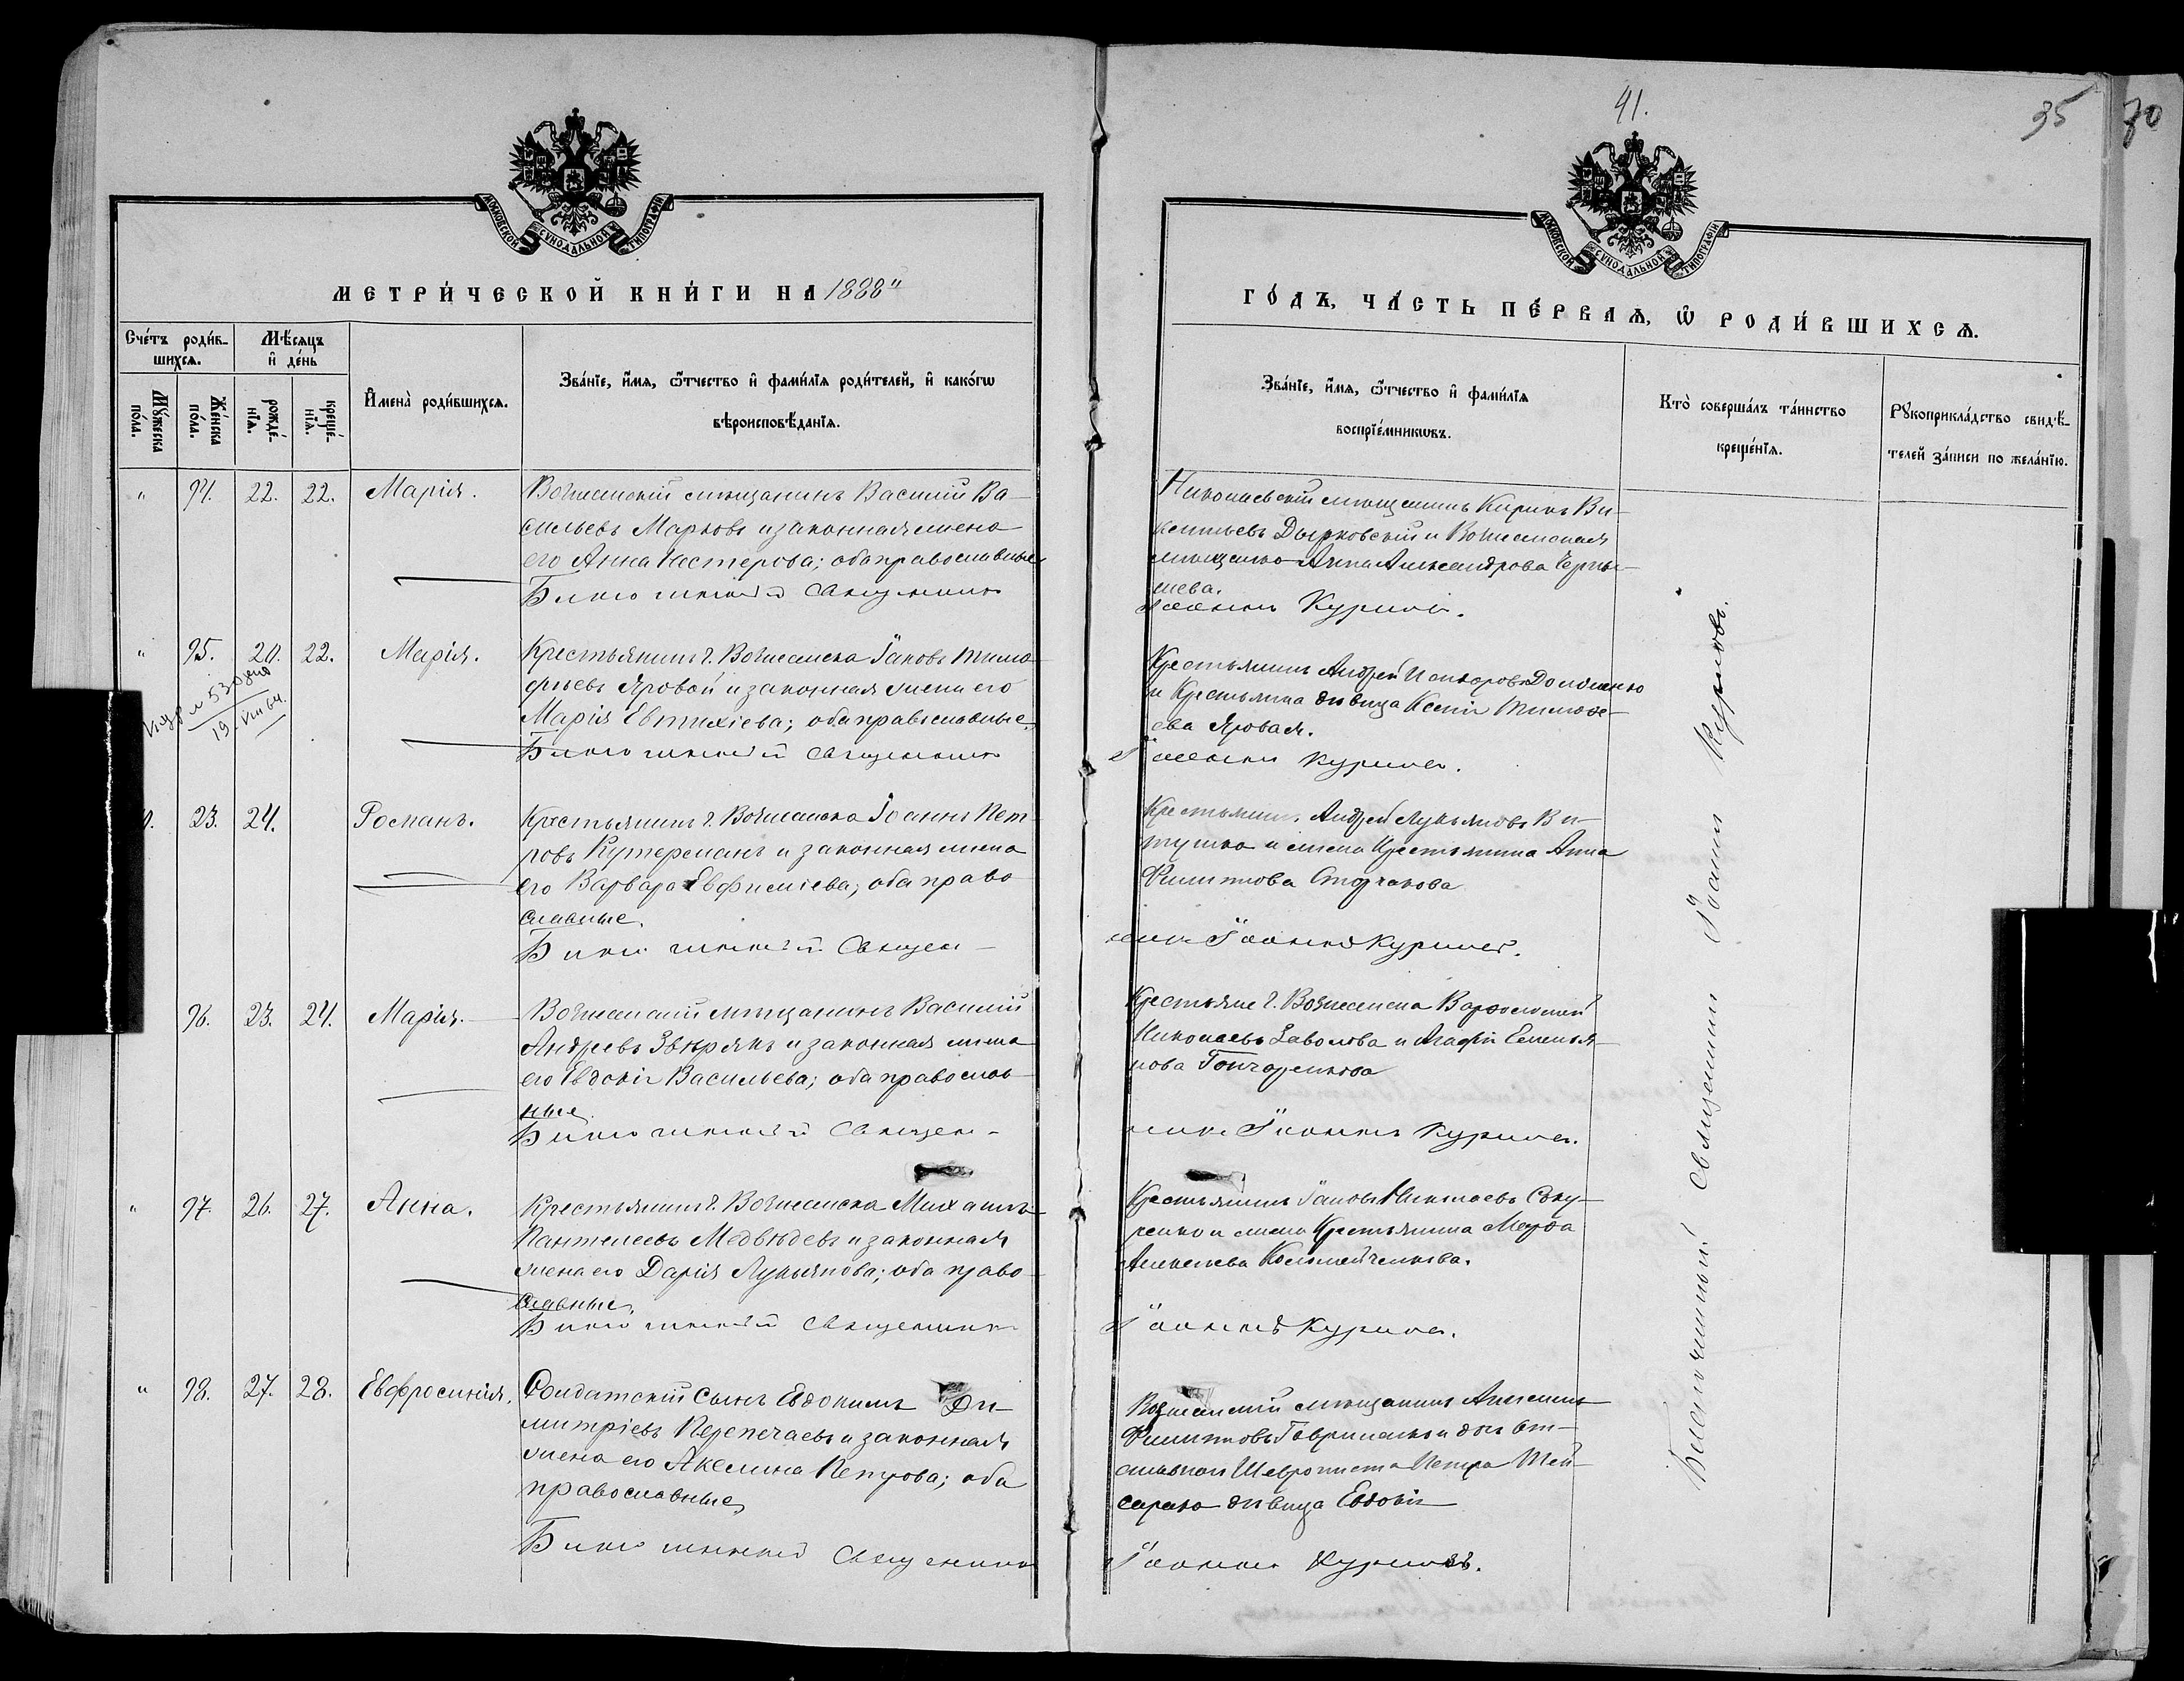 41.
35
70
МОСКОВСКОЙ СѴНОДАЛЬНОЙ ТИПОГРАФІИ
МОСКОВСКОЙ СѴНОДАЛЬНОЙ ТИПОГРАФІИ
МЕТРИ́ЧЕСКОЙ КНИ́ГИ НА 1888"
ГО́ДЪ, ЧА́СТЬ ПЕ́РВАѦ, Ѿ РОДИ́ВШИХСѦ.
Сче́тъ роди́в-
шихсѧ.
Мѣ́сѧцъ
и҆ де́нь
Мꙋ́жеска
по́ла.
Же́нска
по́ла.
рожде́-
нїѧ.
креще́-
нїѧ.
И҆мена̀ роди́вшихсѧ.
Зва́нїе, и҆́мѧ, ѻ҆́тчество и҆ фами́лїѧ роди́телей, и҆ како́гѡ
вѣроисповѣ́данїѧ.
Зва́нїе, и҆́мѧ, ѻ҆́тчество и҆ фами́лїѧ
воспрїе́мникѡвъ.
Кто̀ соверша́лъ та́инство
креще́нїѧ.
Рꙋкоприкла́дство свидѣ́-
телей за́писи по жела́нїю.
" 94. 22. 22. Марія.
Вознесенскій мѣщанинъ Василій Ва-
сильевъ Марковъ и законная жена
его Анна Нестерова; оба православные
священникъ
Николаевскій мѣщанинъ Кирикъ Ви-
кентьевъ Дырковскій и Вознесенская
мѣщанка Анна Александрова Черны-
шева.
Іоаннъ Куриловъ.
" 95. 20. 22. Марія.
19.VIII 64.
Крестьянинъ г. Вознесенска Іаковъ Тимо-
феевъ Яровой и законная жена его
Марія Евтихіева; оба православные.
священникъ
Крестьянинъ Андрей Долженко
и Крестьянка дѣвица Ксенія Тимофе-
ева Яровая.
Іоаннъ Куриловъ.
23. 24. Романъ.
Крестьянинъ г. Вознесенска Іоаннъ Пет-
ровъ Кутерманъ и законная жена
его Варвара Евфиміева; оба право-
славные.
священ-
Крестьянинъ Андрей Лукьяновъ Ви-
тушко и жена Крестьянина Анна
Филиппова Сторчакова
никъ Іоаннъ Куриловъ.
96. 23. 24. Марія.
Вознесенскій мѣщанинъ Василій
Андреевъ Звѣрякъ и законная жена
его Евдокія Васильева; оба православ-
ные.
священ-
Крестьяне г. Вознесенска Варфоломей
Николаевъ Заволова и Агафія Емелья-
нова Гончаренкова
никъ Іоаннъ Куриловъ.
" 97. 26. 27. Анна.
Крестьянинъ г. Вознесенска Михаилъ
Пантелеевъ Медвѣдевъ и законная
жена его Дарія Лукьянова; оба право-
славные.
священникъ
Крестьянинъ Іаковъ Николаевъ Соку-
ренко и жена Крестьянина Марфа
Алексеева Коломейченкова.
Іоаннъ Куриловъ.
" 98. 27. 28. Евфросинія.
Солдатскій сынъ Евдокимъ Ди-
митріевъ Перепечаевъ и законная
жена его Акелина Петрова; оба
православные,
священникъ
Вознесенскій мѣщанинъ Алексей
Филипповъ Гавриленко и дочь от-
ставного Петра
дѣвица Евдокія
Іоаннъ Куриловъ.
Благочинный Священникъ Іоаннъ Куриловъ.